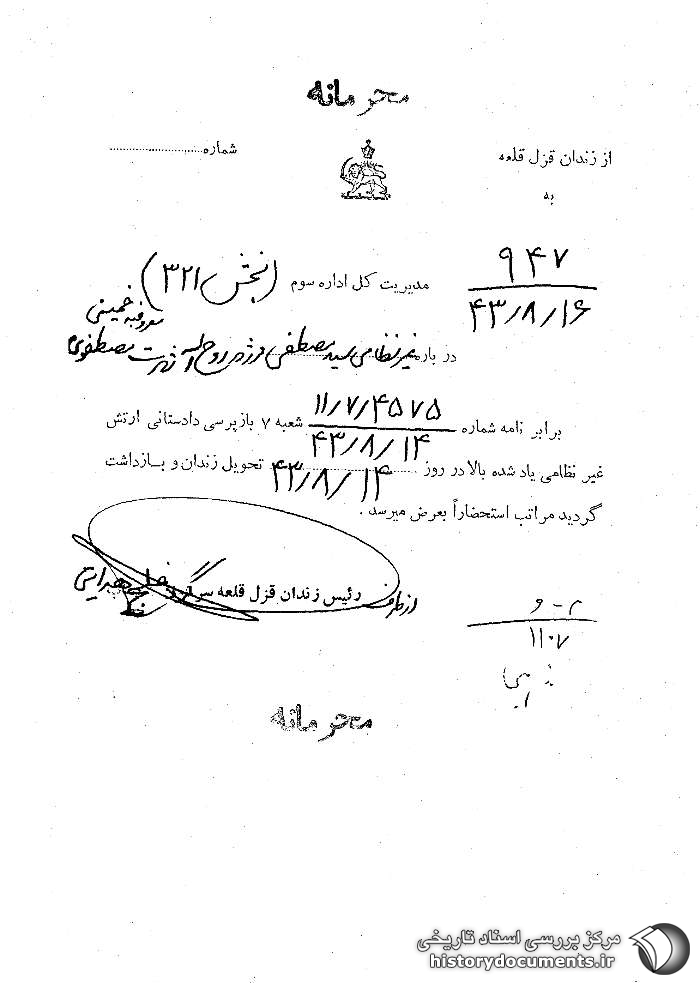 محرمانه
از زندان قزل قلعه
شماره
به
مدیریت کل اداره سوم (بخش ۳۲۱)
۹۴۷
۴۳/۸/۱۶
معروف به خمینی
درباره غیرنظامی سید مصطفی فرزند روح اله شهرت مصطفوی
برابر نامه شماره ۱۱/۷/۴۵۷۵ شعبه ۷ بازپرسی دادستانی ارتش
۴۳/۸/۱۴
غیر نظامی یاد شده بالا در روز ۴۳/۸/۱۴ تحویل زندان و بازداشت
گردید مراتب استحضاراً بعرض میرسد .
از طرف رئیس زندان قزل قلعه
۱۱۰۷
محرمانه
مرکز بررسی اسناد تاریخی
historydocuments.ir